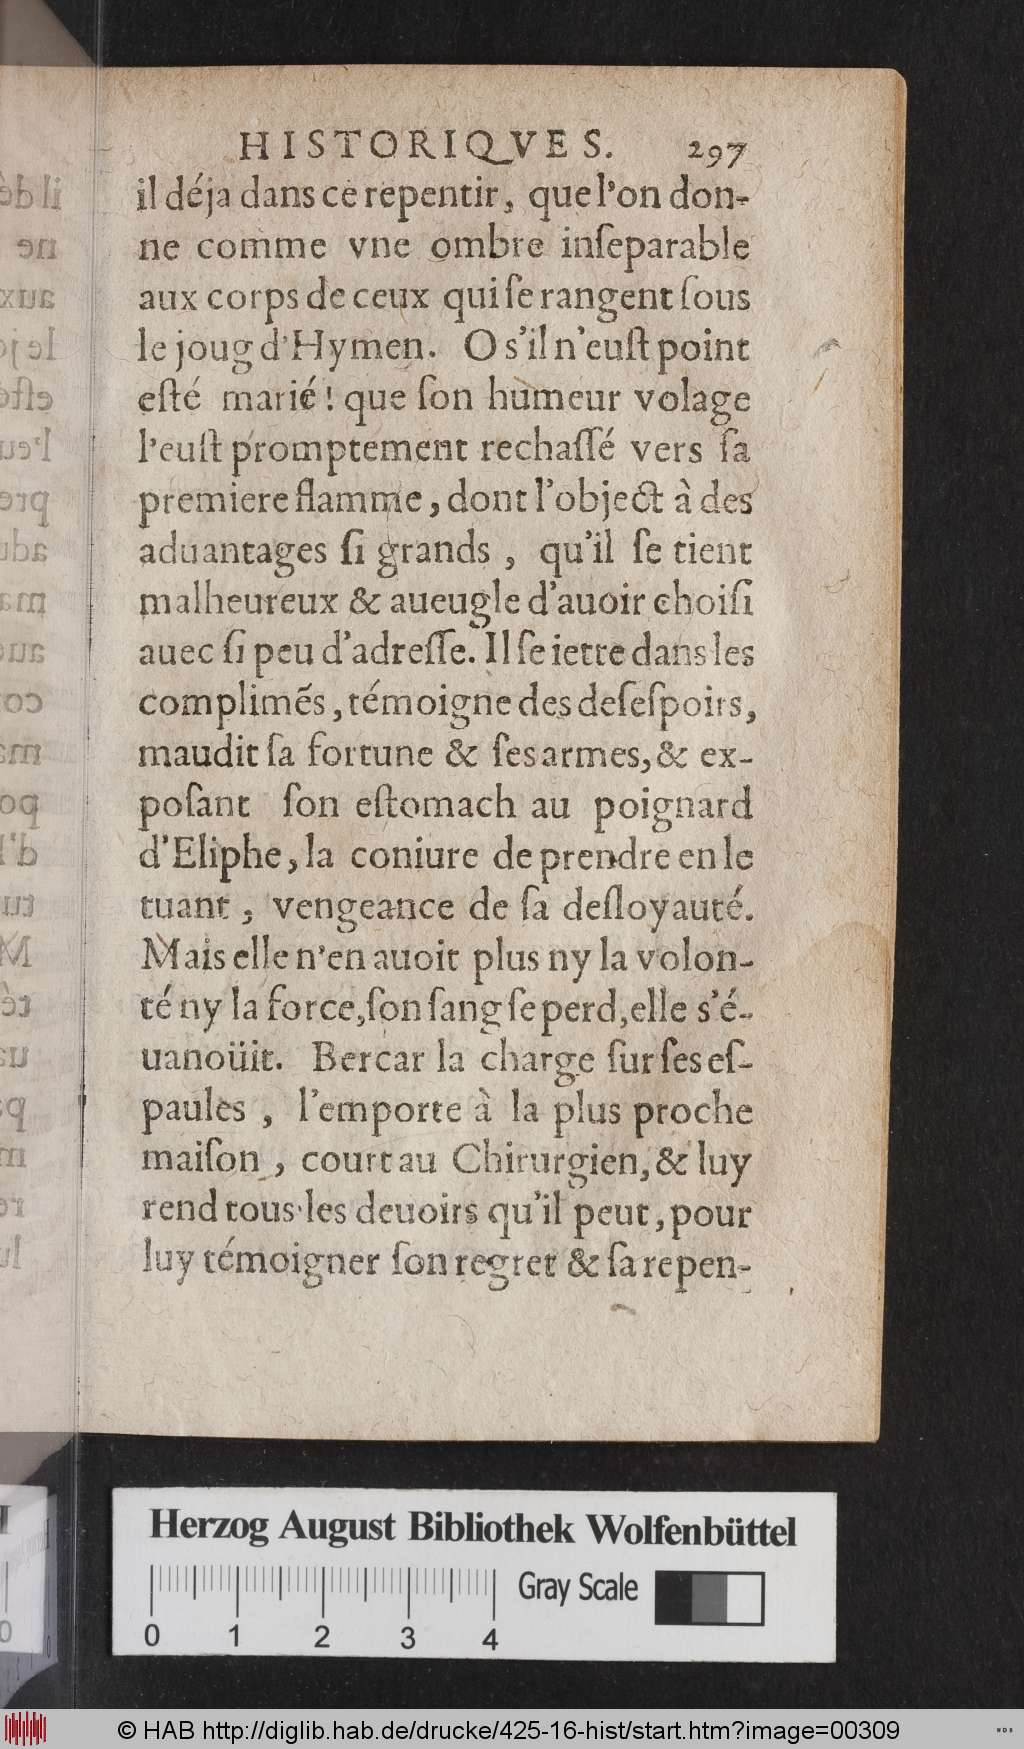 HISTORIQVES. 297
il déja dans ce repentir, que l'on don-
ne comme vne ombre inſeparable
aux corps de ceux qui ſe rangent ſous
le joug d'Hymen. O s'il n'euſt point
eſté marié! que ſon humeur volage
l'euſt promptement rechaſſé vers ſa
premiere flamme, dont l'object à des
aduantages ſi grands, qu'il ſe tient
malheureux & aueugle d'auoir choiſi
auec ſi peu d'adreſſe. Il ſe iette dans les
complimẽs, témoigne des deſeſpoirs,
maudit ſa fortune & ſes armes, & ex-
poſant ſon eſtomach au poignard
d'Eliphe, la coniure de prendre en le
tuant, vengeance de ſa deſloyauté.
Mais elle n'en auoit plus ny la volon-
té ny la force, ſon ſang ſe perd, elle s'é-
uanoüit. Bercar la charge ſur ſes eſ-
paules, l'emporte à la plus proche
maiſon, court au Chirurgien, & luy
rend tous les deuoirs qu'il peut, pour
luy témoigner ſon regret & ſa repen-
Herzog August Bibliothek Wolfenbüttel
Gray Scale
0 1 2 3 4
© HAB http://diglib.hab.de/drucke/425-16-hist/start.htm?image=00309